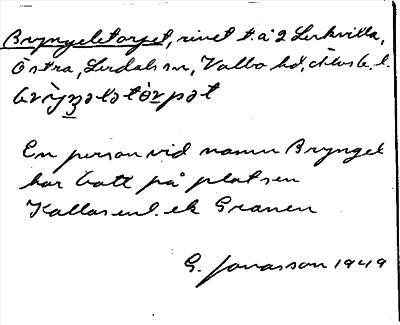 Bryngeletorpet, rivet t. å 2 Lerkvilla,
Östra, Lerdals sn, Valbo hd, Älvsb. l.
En person vid namn Bryngel
har bott på platsen
Kallas enl. ek Granen
G. Jonasson 1949